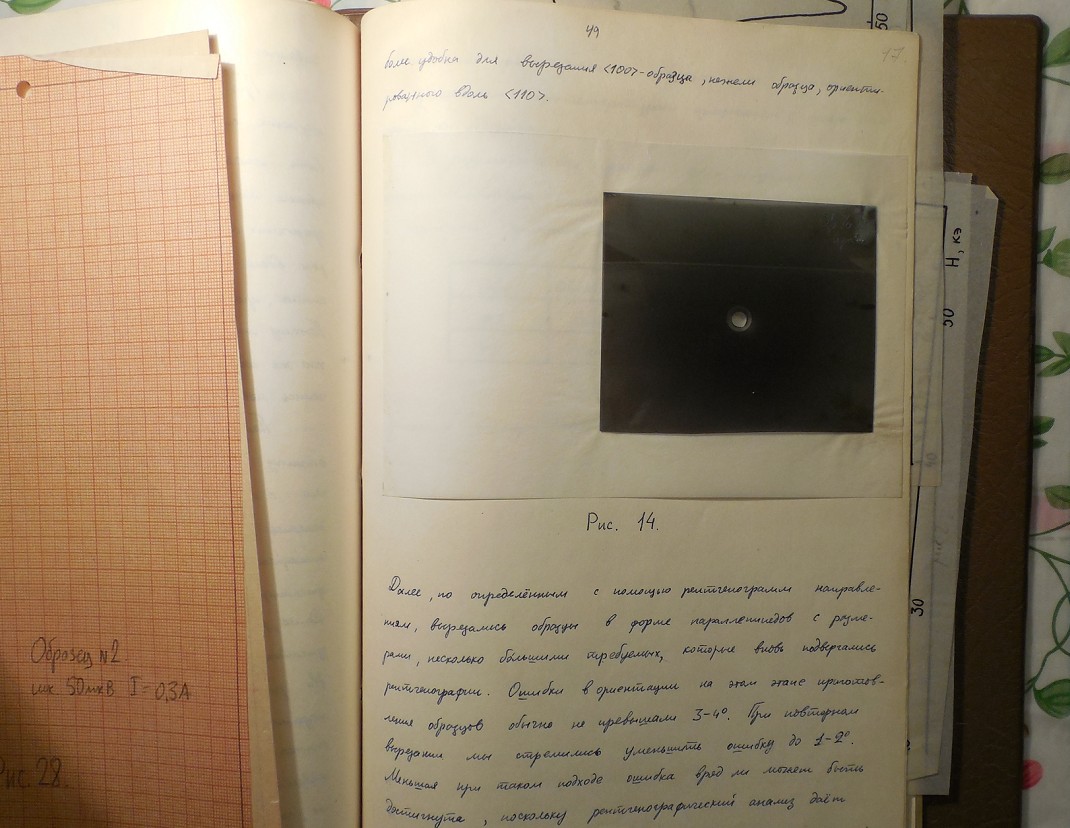 49
17.
более удобна для вырезания <100>-образца, нежели образца, ориенти-
рованного вдоль <110>.
Рис. 14.
Далее, по определённым с помощью рентгенограмм направле-
ниям, вырезались образцы в форме параллепипедов с разме-
рами, несколько большими требуемых, которые вновь подвергались
рентгенографии. Ошибки в ориентации на этом этапе приготов-
ления образцов обычно не превышали 3-4°. При повторном
вырезании мы стремились уменьшить ошибку до 1-2°.
Меньшая при таком подходе ошибка вряд ли может быть
достигнута, поскольку рентгенографический анализ даёт
Образец №2
шк. 50мкВ I = 0,3А
Рис. 28.
50
H, кэ
50
30